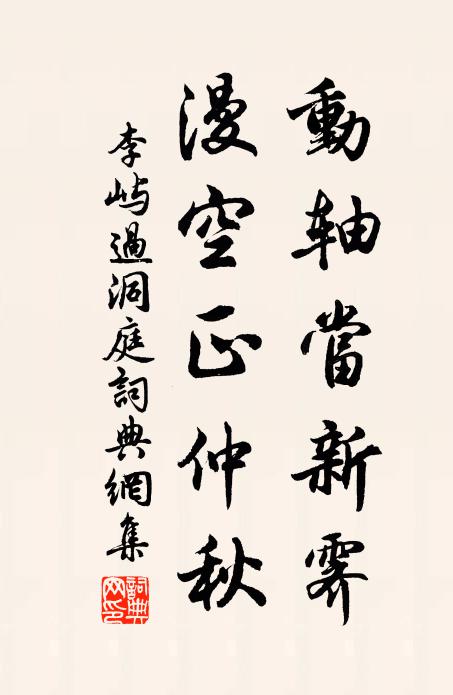 動軸當新霽
漫空正仲秋
李嶼過洞庭詞典網集
詞典
网印